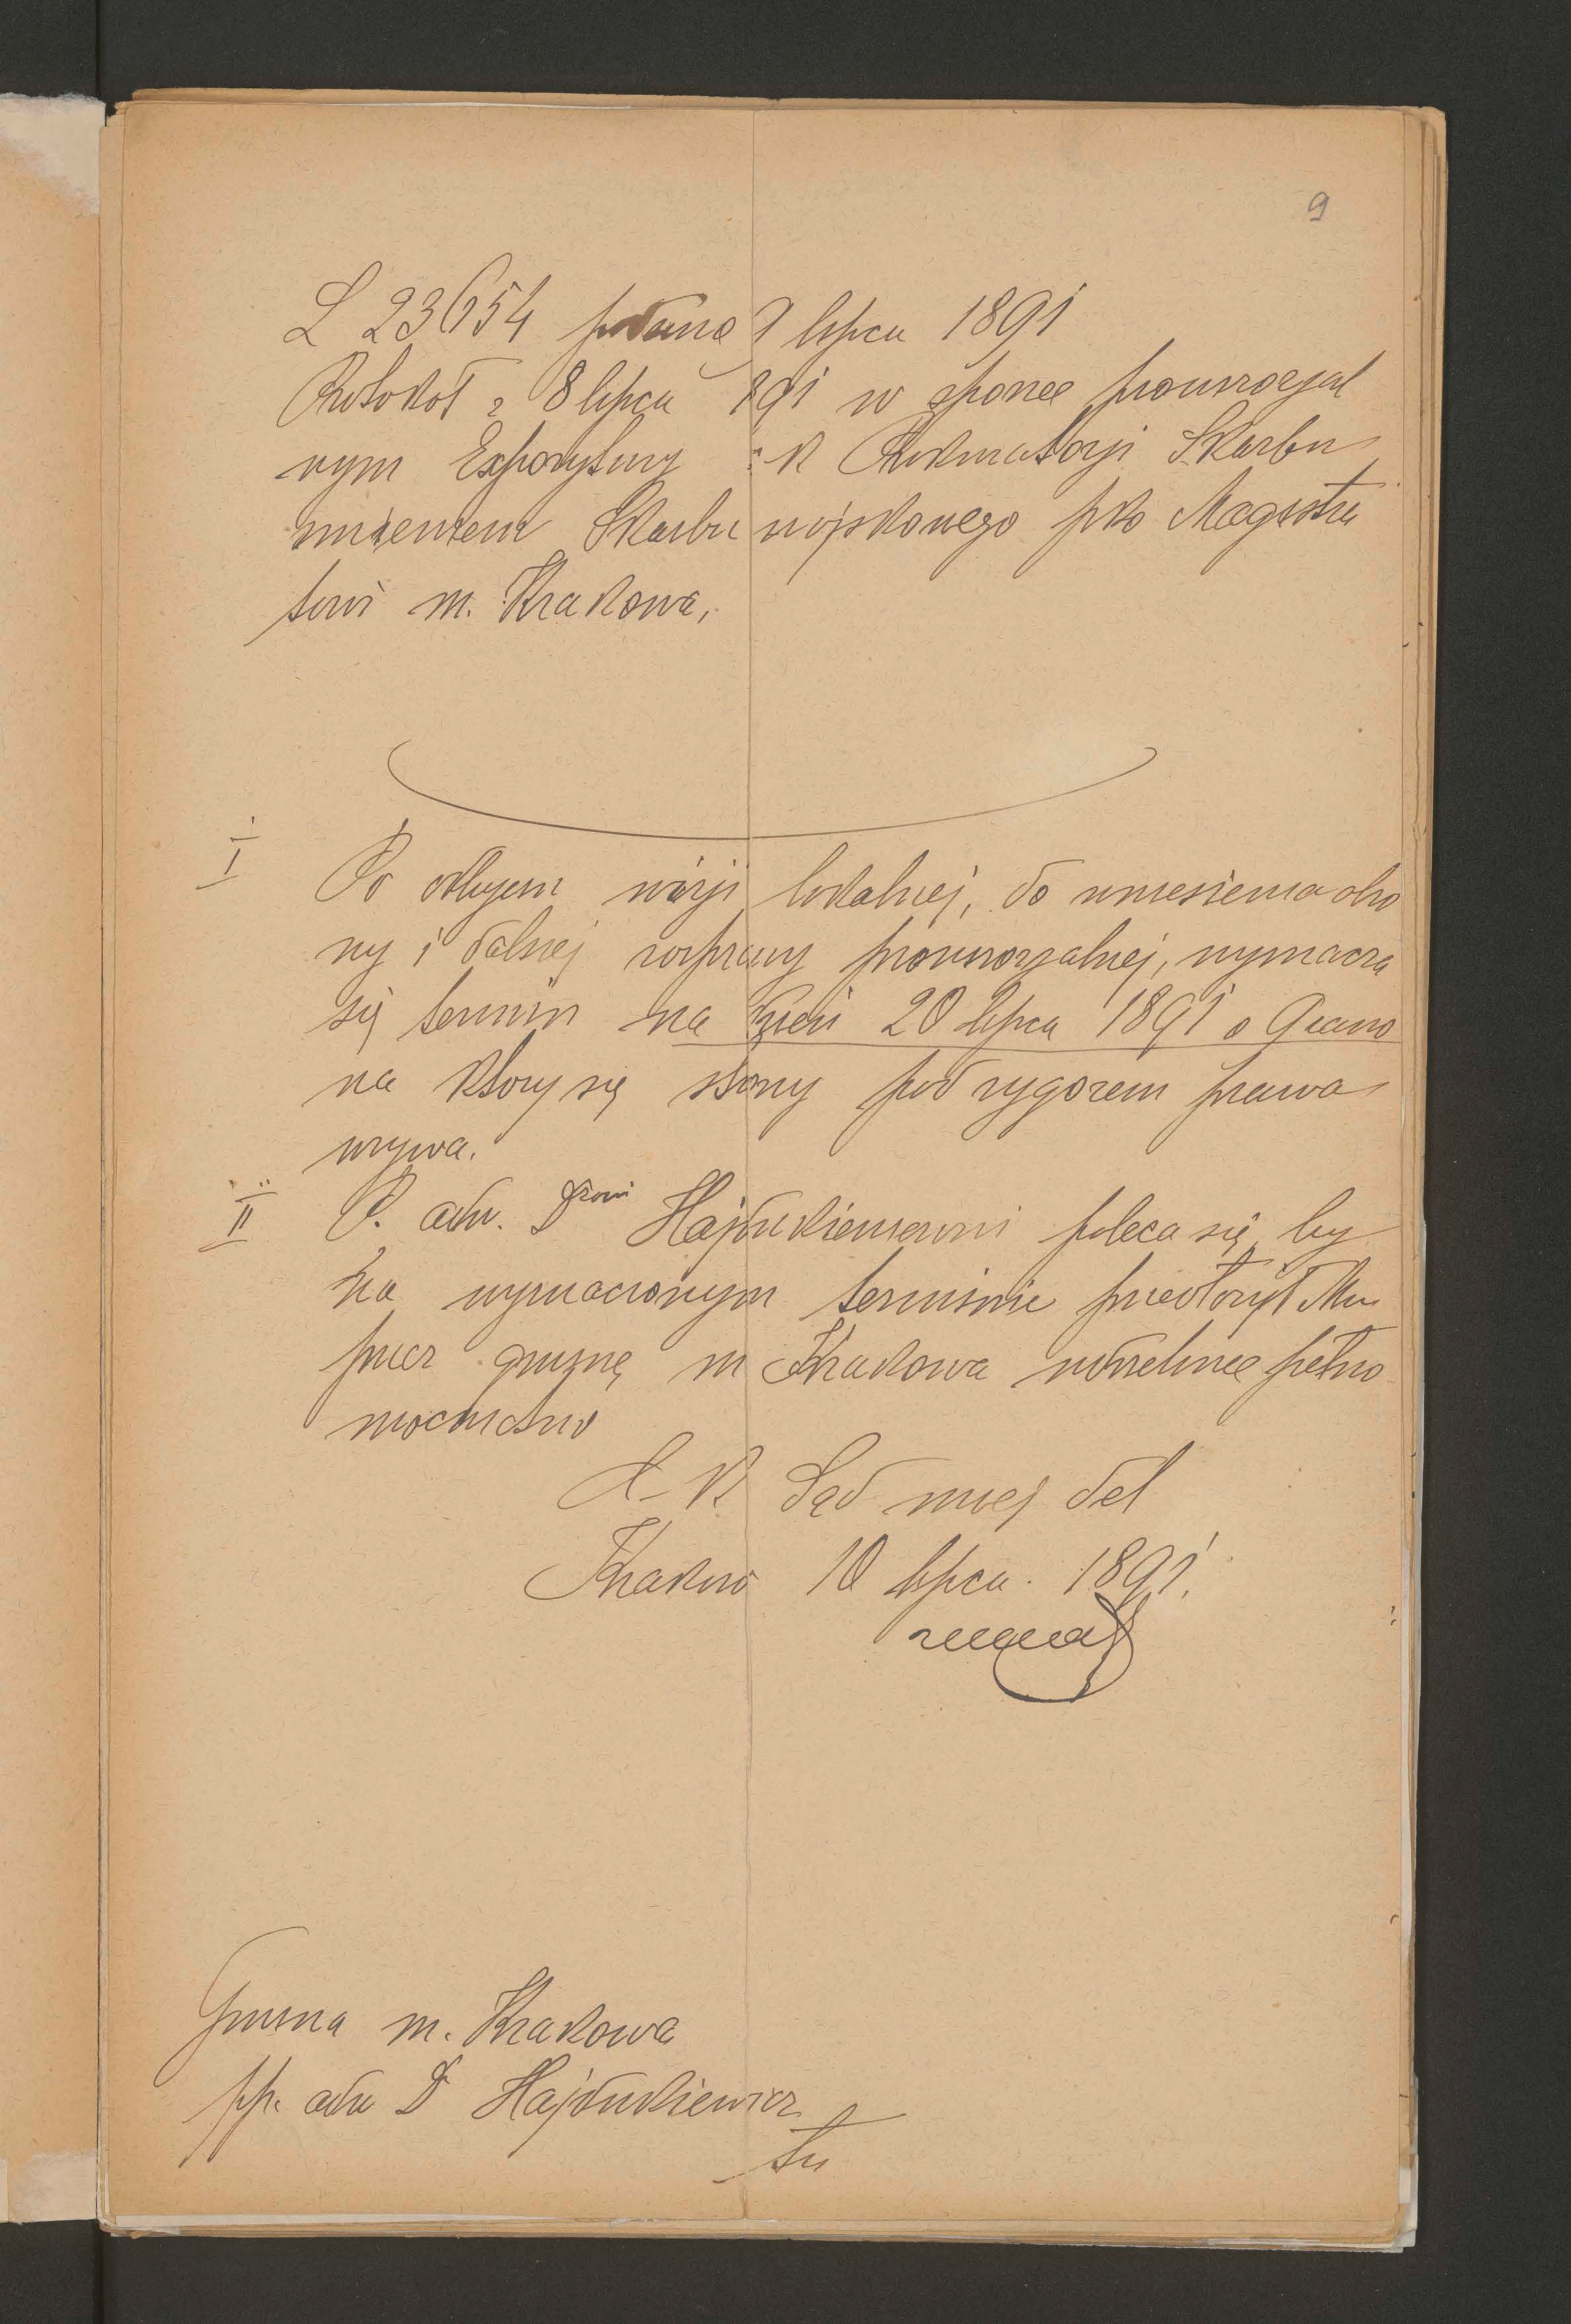 9
L 23654 podano 9 lipca 1891
Protokół z 8 lipca 891 w sporze prowizoryal
nym Expozytury c. k Prokuratoryi Skarbu
imieniem Skarbu wojskowego pko Magistra
towi m. Krakowa,
I
Po odbyciu wizyi lokalnej, do wniesienia obro
ny i dalszej rozprawy prowizoryalnej, wyznacza
się termin na dzień 20 lipca 1891 o 9 rano
na który się strony pod rygorem prawa
wzywa.
II
P. adw. Drowi Hajdukiewiczowi poleca się, by
na wyznaczonym terminie przedłożył Mu
przez gminę m Krakowa udzielone pełno
mocnictwo
C. K. Sąd miej del
Kraków 10 lipca 1891.
Gmina m. Krakowa
pp. adw Dr Hajdukiewicz
tu